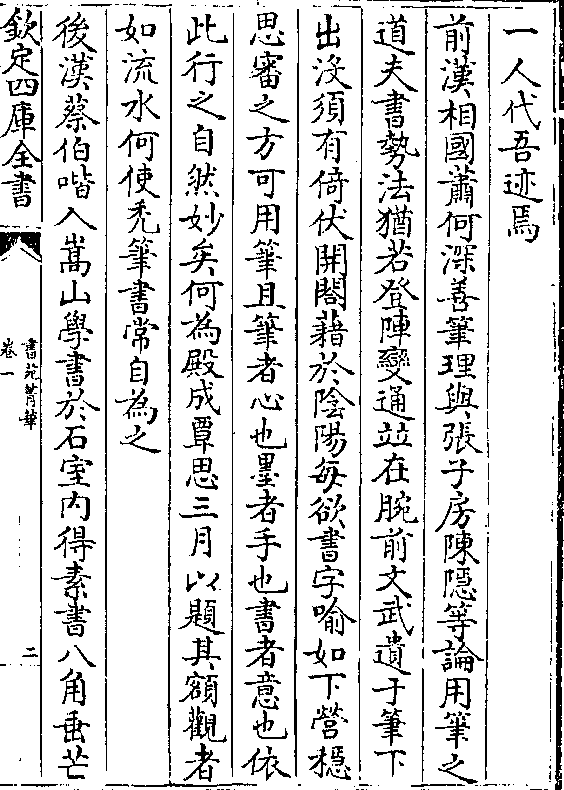 一人代吾迹焉
前漢相國蕭何深善筆理與張子房陳隠等論用筆之
道夫書勢法猶若登陣變通竝在腕前文武遺于筆下
出沒須有倚伏開闔藉於陰陽每欲書字喻如下營穩
思審之方可用筆且筆者心也墨者手也書者意也依
此行之自然妙矣何為殿成覃思三月以題其額觀者
如流水何使禿筆書常自為之
後漢蔡伯喈入嵩山學書於石室内得素書八角垂芒
欽定四庫全書
書苑菁華
卷一
二